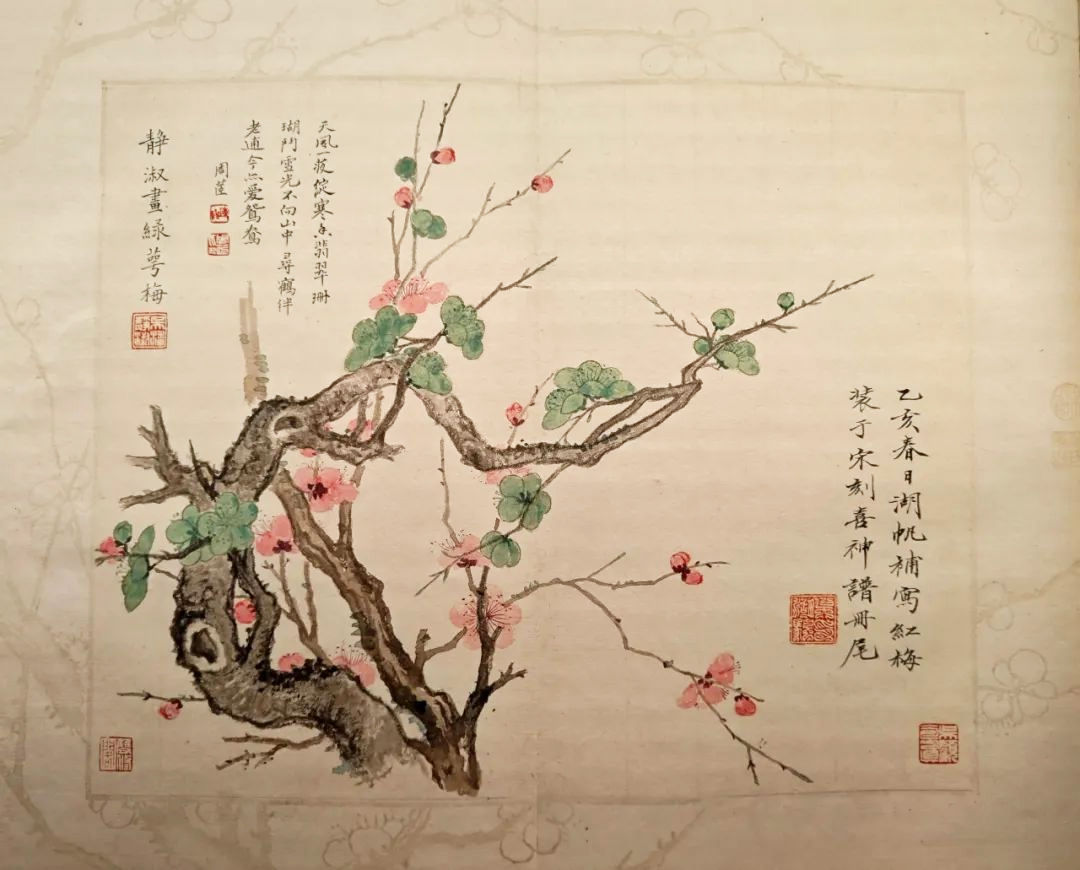 乙亥春日湖帆補寫紅梅
裝于宋刻喜神譜冊尾
天風一綻寒香翡翠珊
瑚鬥雪光不向山中尋鶴伴
老逋今亦愛鴛鴦
周
靜淑畫綠萼梅